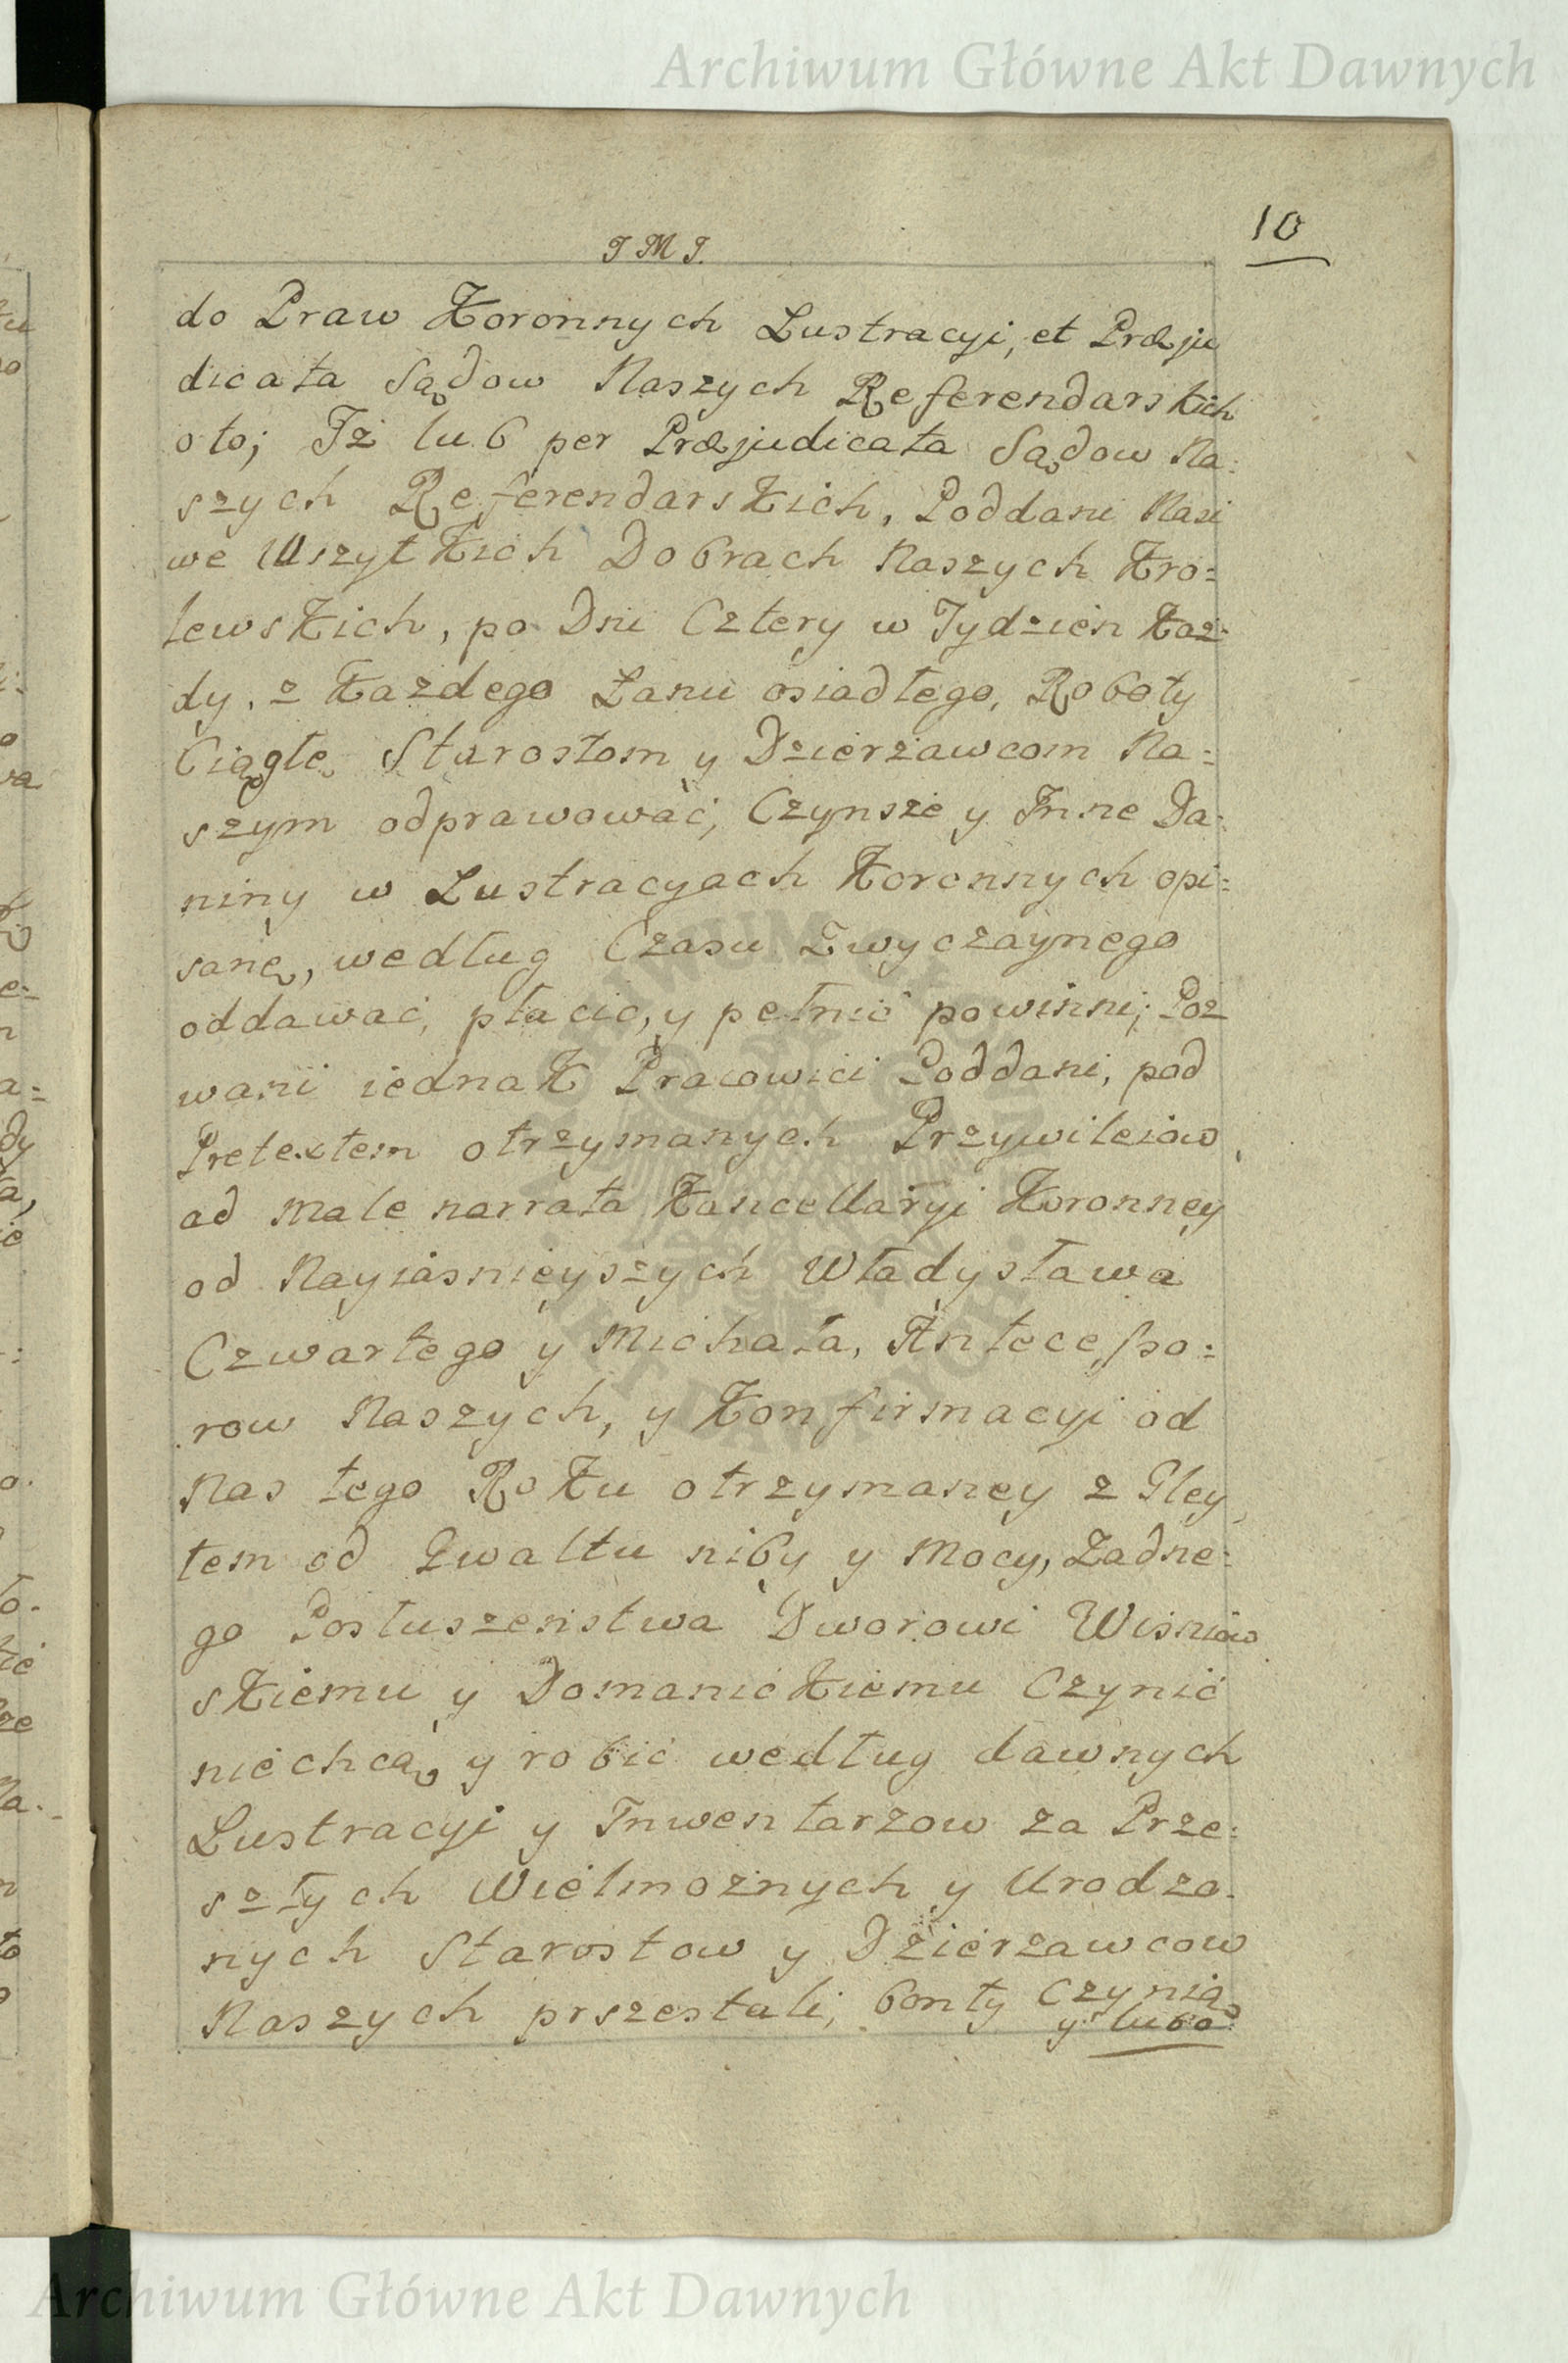 Archiwum Główne Akt Dawnych
10
J M J.
do Praw Koronnych Lustracyi, et Præju
dicata Sądow Naszych Referendarskich
o to; Iż lub per Præjudicata Sądow Na:
szych Referendarskich, Poddani Nasi
we Wszytkich Dobrach Naszych Kro=
lewskich, po Dni Cztery w Tydzień Kaz:
dy, z Kazdego Łanu osiadłego, Roboty
Ciągłe, Starostom y Dzierżawcom Na=
szym odprawować, Czynsze y Inne Da:
niny w Lustracyach Koronnych opi=
sanę, według Czasu Zwyczaynego
oddawać, płacić, y pełnić powinni; Poz
wani iednak Pracowici Poddani, pod
Pretextem otrzymanych Przywileiow,
ad male narrata Kancellaryi Koronney
od Nayiasnieyszych Władysława
Czwartego y Michała, Antecesso:
row Naszych, y Konfirmacyi od
Nas tego Roku otrzymaney z Gley
tem od Gwałtu niby y Mocy, Zadne:
go Posłuszeństwa Dworowi Wisniow
skiemu y Domanickiemu Czynić
niechcą, y robić według dawnych
Lustracyi y Inwentarzow za Prze:
szłych Wielmoznych y Urodzo.
nych Starostow y Dzierzawcow
Naszych przestali, bonty Czynią
y lubo
Archiwum Główne Akt Dawnych